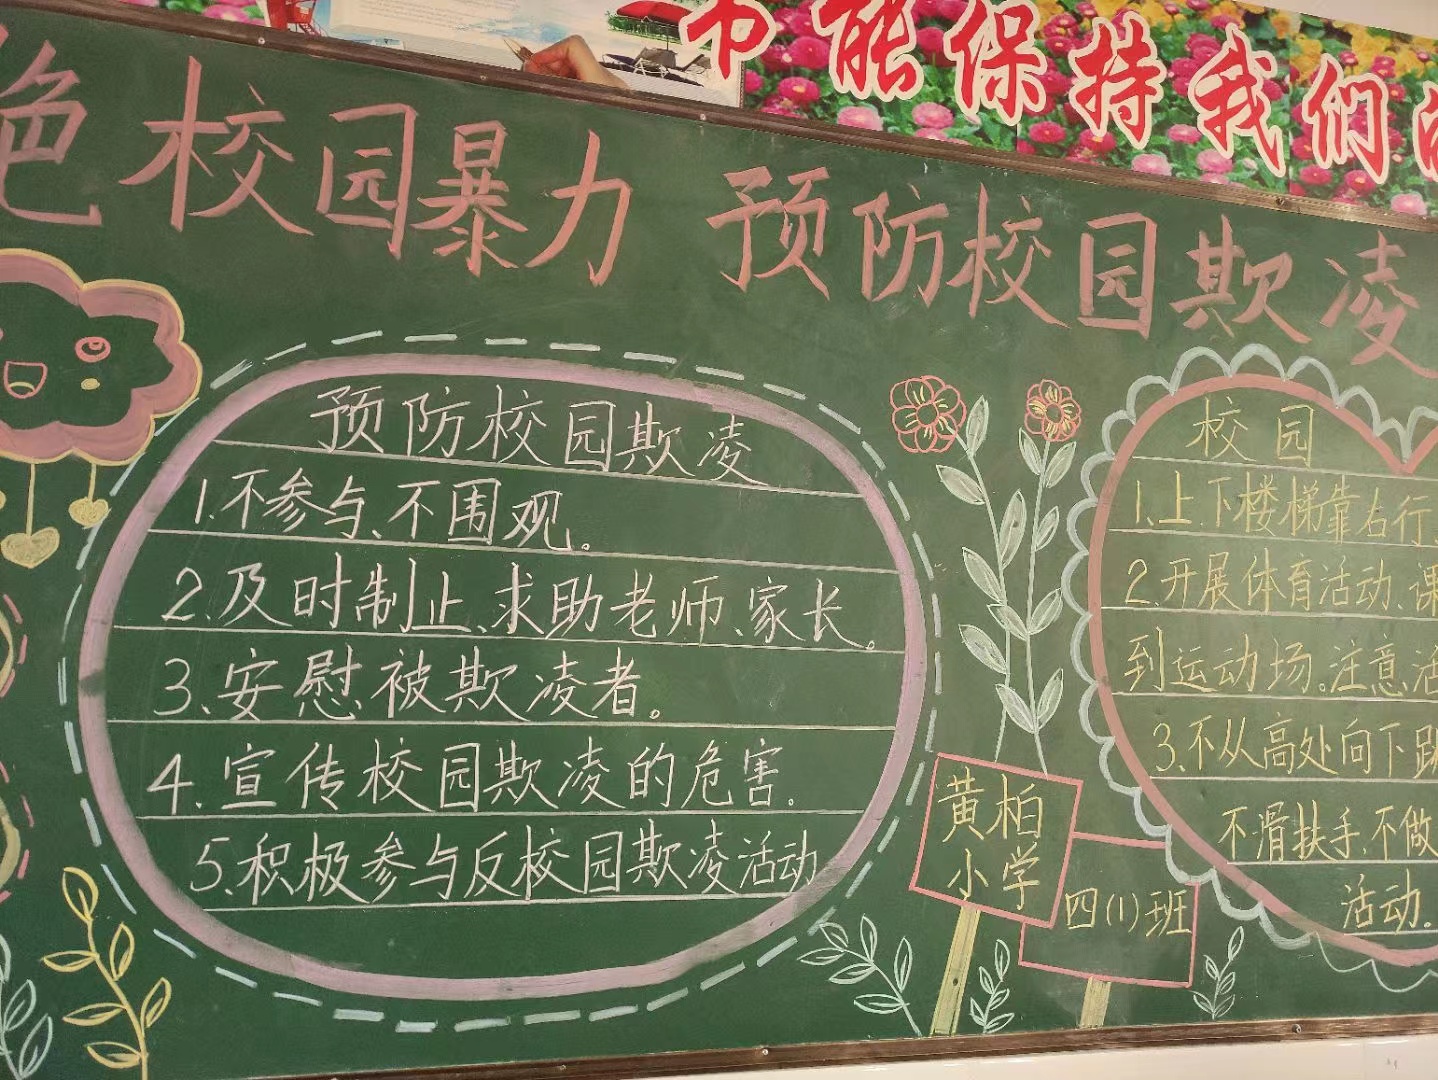 能保持我们
绝校园暴力 预防校园欺凌
预防校园欺凌
1.不参与、不围观。
2.及时制止、求助老师、家长。
3.安慰被欺凌者。
4.宣传校园欺凌的危害。
5.积极参与反校园欺凌活动
黄柏
小学
四(1)班
校园
1.上、下楼梯靠右行
2.开展体育活动、课
到运动场。注意活
3.不从高处向下跳
不滑扶手,不做
活动.